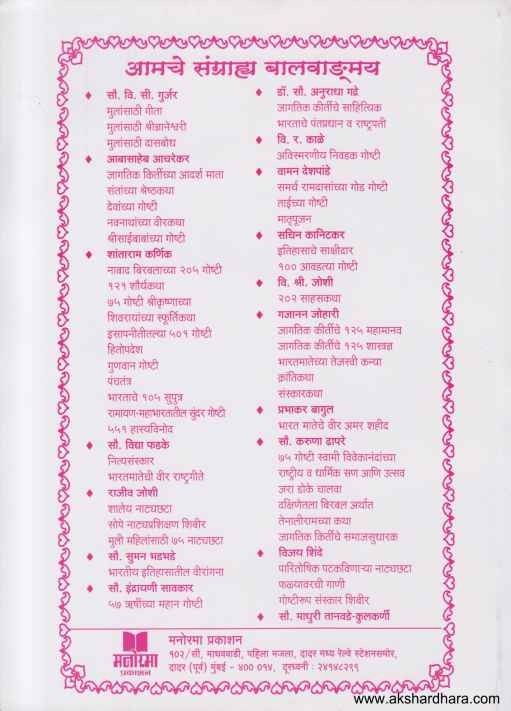 आमचे संग्राह्य बालवाङ्मय
सौ. वि. सी. गुर्जर
मुलांसाठी गीता
मुलांसाठी श्रीज्ञानेश्वरी
मुलांसाठी दासबोध
आबासाहेब आचरेकर
जागतिक किर्तीच्या आदर्श माता
संतांच्या श्रेष्ठकथा
देवांच्या गोष्टी
नवनाथांच्या वीरकथा
श्रीसाईबाबांच्या गोष्टी
शांताराम कर्णिक
नाबाद बिरबलाच्या २०५ गोष्टी
१२१ शौर्यकथा
७५ गोष्टी श्रीकृष्णाच्या
शिवरायांच्या स्फूर्तिकथा
इसापनीतीतल्या ५०१ गोष्टी
हितोपदेश
गुणवान गोष्टी
पंचतंत्र
भारताचे १०५ सुपुत्र
रामायण-महाभारतातील सुंदर गोष्टी
५५१ हास्यविनोद
सौ. विद्या फडके
नित्यसंस्कार
भारतमातेची वीर राष्ट्रगीते
राजीव जोशी
शालेय नाट्यछटा
सोपे नाट्यप्रशिक्षण शिबीर
मुली महिलांसाठी ७५ नाट्यछटा
सौ. सुमन भडभडे
भारतीय इतिहासातील वीरांगना
सौ. इंद्रायणी सावकार
५७ ऋषींच्या महान गोष्टी
डॉ. सौ. अनुराधा गद्रे
जागतिक कीर्तीचे साहित्यिक
भारताचे पंतप्रधान व राष्ट्रपती
वि. र. काळे
अविस्मरणीय निवडक गोष्टी
वामन देशपांडे
समर्थ रामदासांच्या गोड गोष्टी
ताईच्या गोष्टी
मातृपूजन
सचिन कानिटकर
इतिहासाचे साक्षीदार
१०० आवडत्या गोष्टी
वि. श्री. जोशी
२०२ साहसकथा
गजानन जोहारी
जागतिक कीर्तीचे १२५ महामानव
जागतिक कीर्तीचे १२५ शास्त्रज्ञ
भारतमातेच्या तेजस्वी कन्या
क्रांतिकथा
संस्कारकथा
प्रभाकर बागुल
भारत मातेचे वीर अमर शहीद
सौ. करुणा ढापरे
७५ गोष्टी स्वामी विवेकानंदांच्या
राष्ट्रीय व धार्मिक सण आणि उत्सव
जरा डोके चालवा
दक्षिणेतला बिरबल अर्थात
तेनालीरामच्या कथा
जागतिक किर्तिचे समाजसुधारक
विजय शिंदे
पारितोषिक पटकविणाऱ्या नाट्यछटा
फळ्यावरची गाणी
गोष्टीरूप संस्कार शिबीर
सौ. माधुरी तानवडे-कुलकर्णी
मनोरमा
प्रकाशन
मनोरमा प्रकाशन
१०२/सी, माधववाडी, पहिला मजला, दादर मध्य रेल्वे स्टेशनसमोर,
दादर (पूर्व) मुंबई - ४०० ०१४, दूरध्वनी : २४१४८२९९
www.akshardhara.com